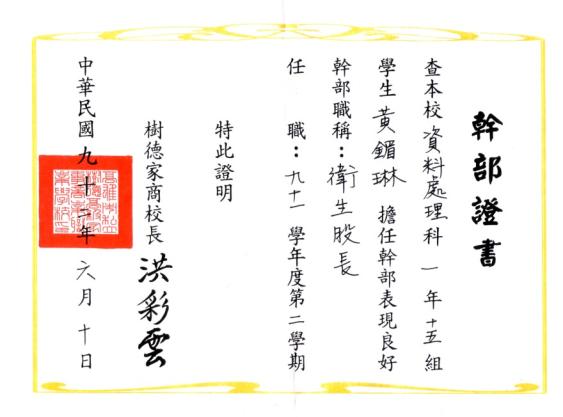 幹部證書
查本校資料處理科 一 年十五組
學生黃鎇琳 擔任幹部表現良好
幹部職稱：衛生股長
任 職：九十一 學年度第二學期
特此證明
樹德家商校長 洪彩雲
中華民國九十二年 六月 十日